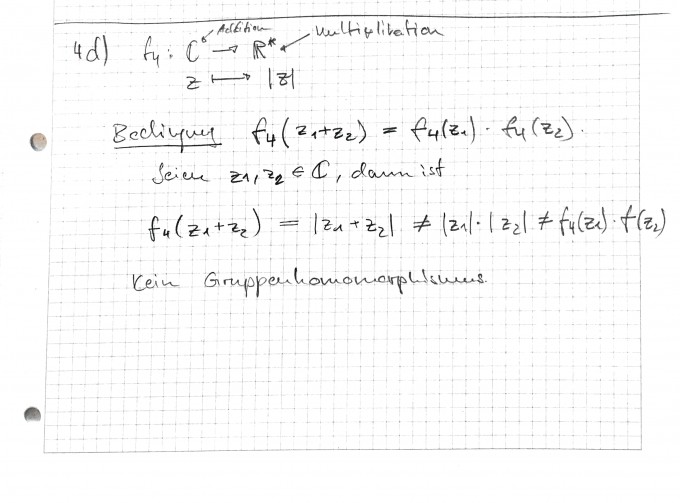 Addition
Multiplikation
4d) f₄: C* → R*
z ↦ |z|
Bedingung f₄(z₁+z₂) = f₄(z₁) · f₄(z₂).
Seien z₁, z₂ ∈ ℂ, dann ist
f₄(z₁+z₂) = |z₁+z₂| ≠ |z₁|·|z₂| ≠ f₄(z₁)·f(z₂)
Kein Gruppenhomomorphismus.